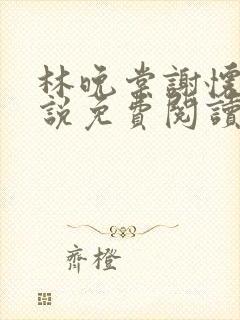 林晚棠謝懷
說免費閱讀
齊橙